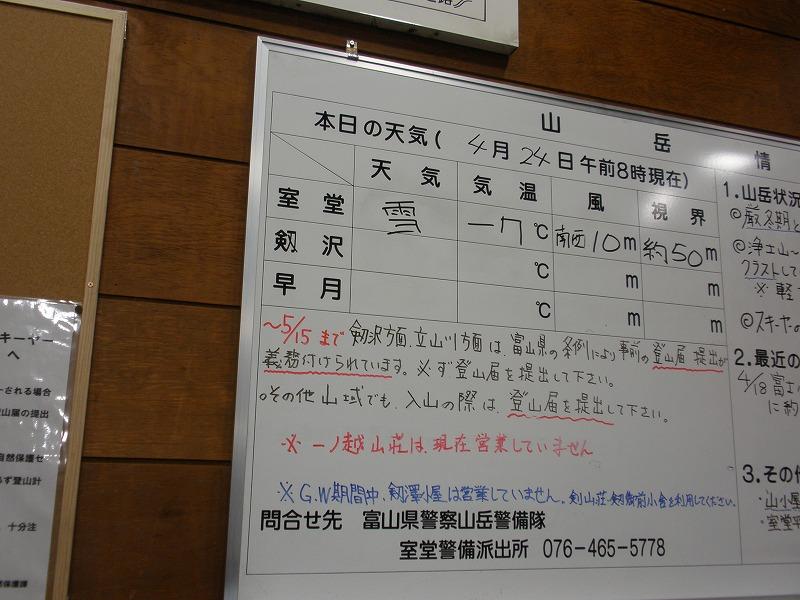 山岳情
本日の天気( 4月24日午前8時現在)
天気 気温 風 視界
室堂 雪 -7℃ 南西10m 約50m
剱沢 ℃ m m
早月 ℃ m m
~5/15まで 剱沢方面、立山川方面は、富山県の条例により事前の登山届提出が
義務付けられています。必ず登山届を提出して下さい。
○その他山域でも、入山の際は、登山届を提出して下さい。
※ 一ノ越山荘は、現在営業していません
※ G.W期間中、剱澤小屋は営業していません。剣山荘・剱御前小舎を利用してください。
問合せ先 富山県警察山岳警備隊
室堂警備派出所 076-465-5778
1.山岳状況
◎厳冬期と
◎浄土山~
クラストして
※ 軽
◎スキーヤーの
2.最近の
4/18富士
に約
3.その他
・山小屋
・室堂平
スキーヤー
へ
される場合
山届の提出
自然保護セ
らず登山計
、十分注
然保護課